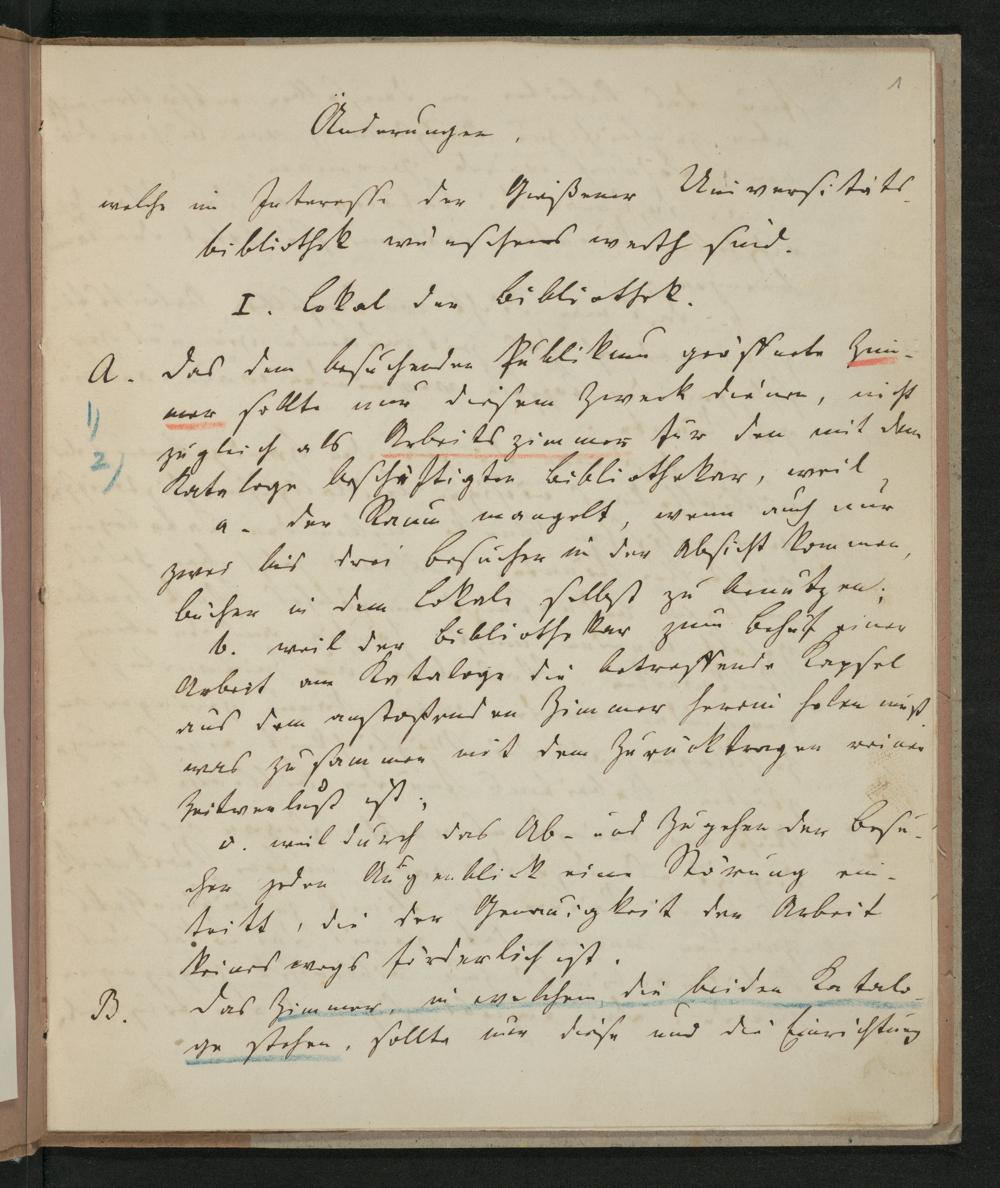 1
Änderungen,
welche im Interesse der Gießener Universitäts-
bibliothek wünschenswerth sind.
I. Lokal der Bibliothek.
A. Das dem besuchenden Publikum geöffnete Zim-
1) mer sollte nur diesem Zweck dienen, nicht
2) zugleich als Arbeitszimmer für den mit dem
Kataloge beschäftigten Bibliothekar, weil
a. der Raum mangelt, wenn auch nur
zwei bis drei Besucher in der Absicht kommen,
Bücher in dem Lokale selbst zu benutzen;
b. weil der Bibliothekar zum Behuf einer
Arbeit am Kataloge die betreffende Kapsel
aus dem anstoßenden Zimmer herein holen muß
was zusammen mit dem Zurücktragen reiner
Zeitverlust ist;
c. weil durch das Ab- und Zugehen der Besu-
cher jeden Augenblick eine Störung ein-
tritt, die der Genauigkeit der Arbeit
keineswegs förderlich ist.
B. Das Zimmer, in welchem die beiden Katalo-
ge stehen, sollte nur diese und die Einrichtung